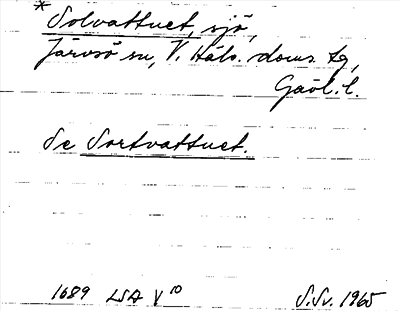 * Solvattnet, sjö,
Järvsö sn, V. Häls. doms. tg,
Gävl. l.
Se Sortvattnet.
1689 LSA V 10
S.Sv. 1965